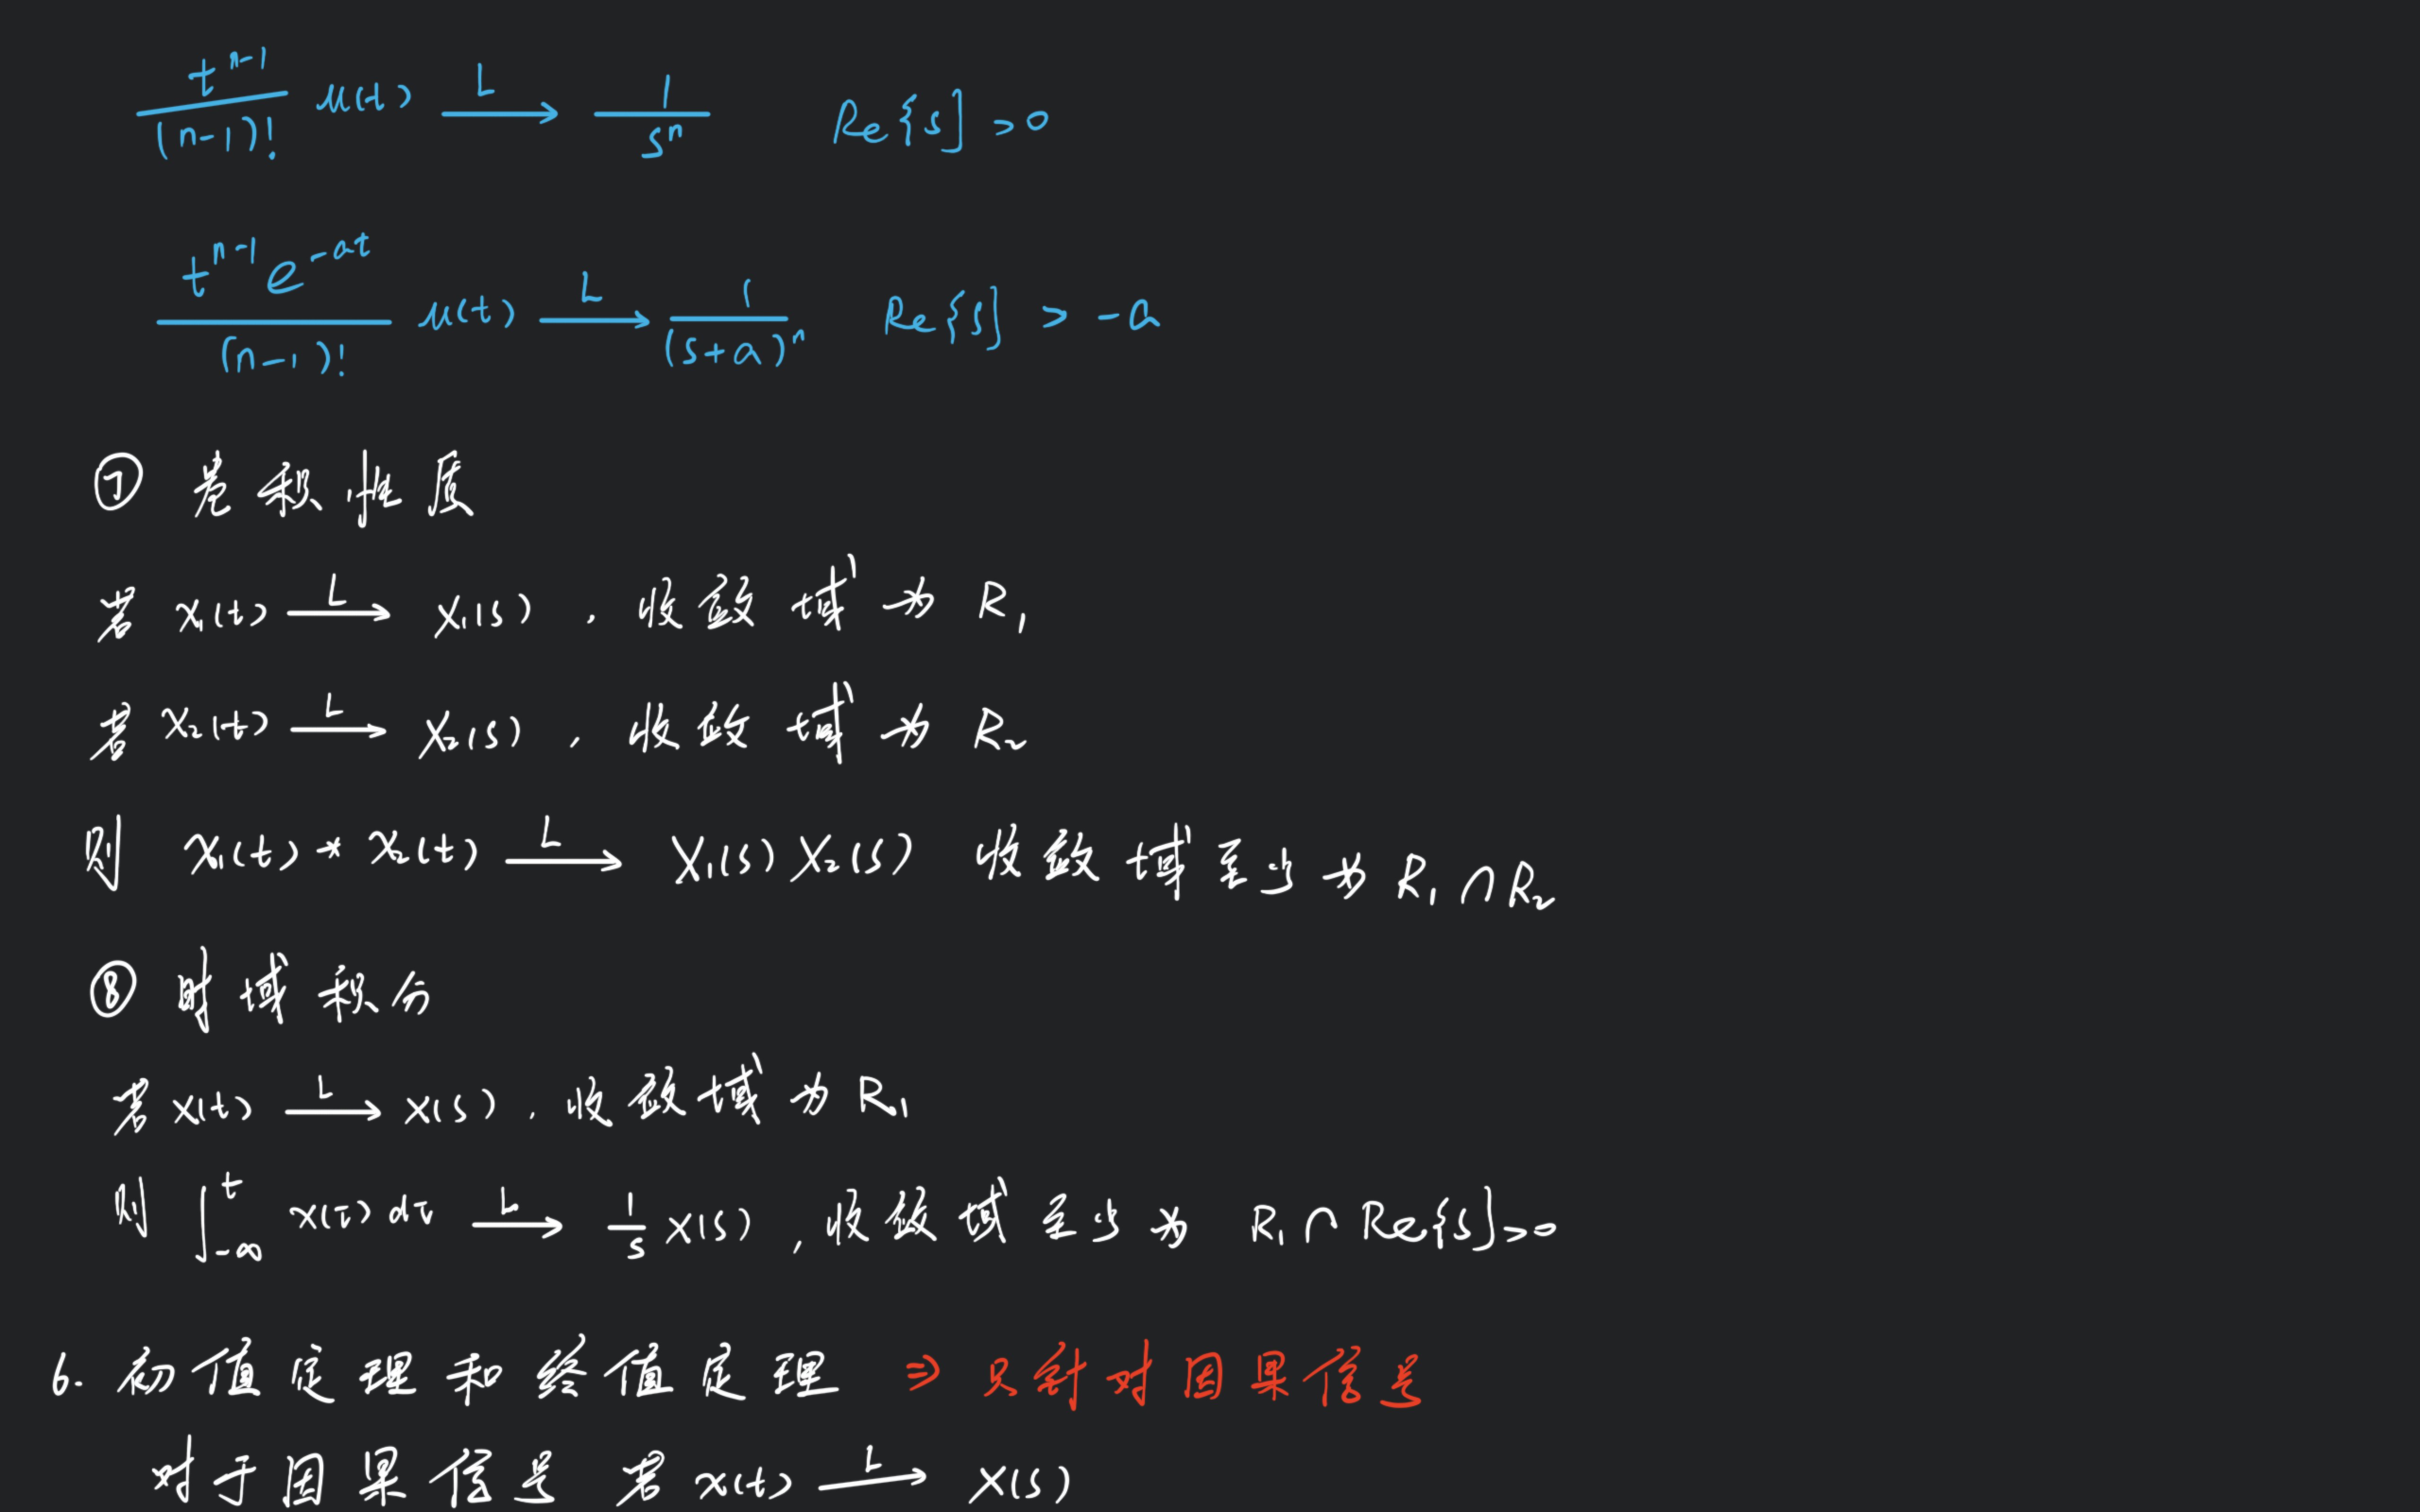 t^{n-1}/(n-1)! u(t) —L→ 1/s^n Re{s}>0
t^{n-1}e^{-at}/(n-1)! u(t) —L→ 1/(s+a)^n Re{s}>-a
⑦ 卷积性质
若 x₁(t) —L→ X₁(s), 收敛域为 R₁
若 x₂(t) —L→ X₂(s), 收敛域为 R₂
则 x₁(t)*x₂(t) —L→ X₁(s)X₂(s) 收敛域至少为 R₁∩R₂
⑧ 时域积分
若 x(t) —L→ X(s), 收敛域为 R₁
则 ∫_{-∞}^{t} x(τ)dτ —L→ 1/s X(s), 收敛域至少为 R₁∩Re{s}>0
6. 初值定理和终值定理 ⇒ 只针对因果信号
对于因果信号 若 x(t) —L→ X(s)